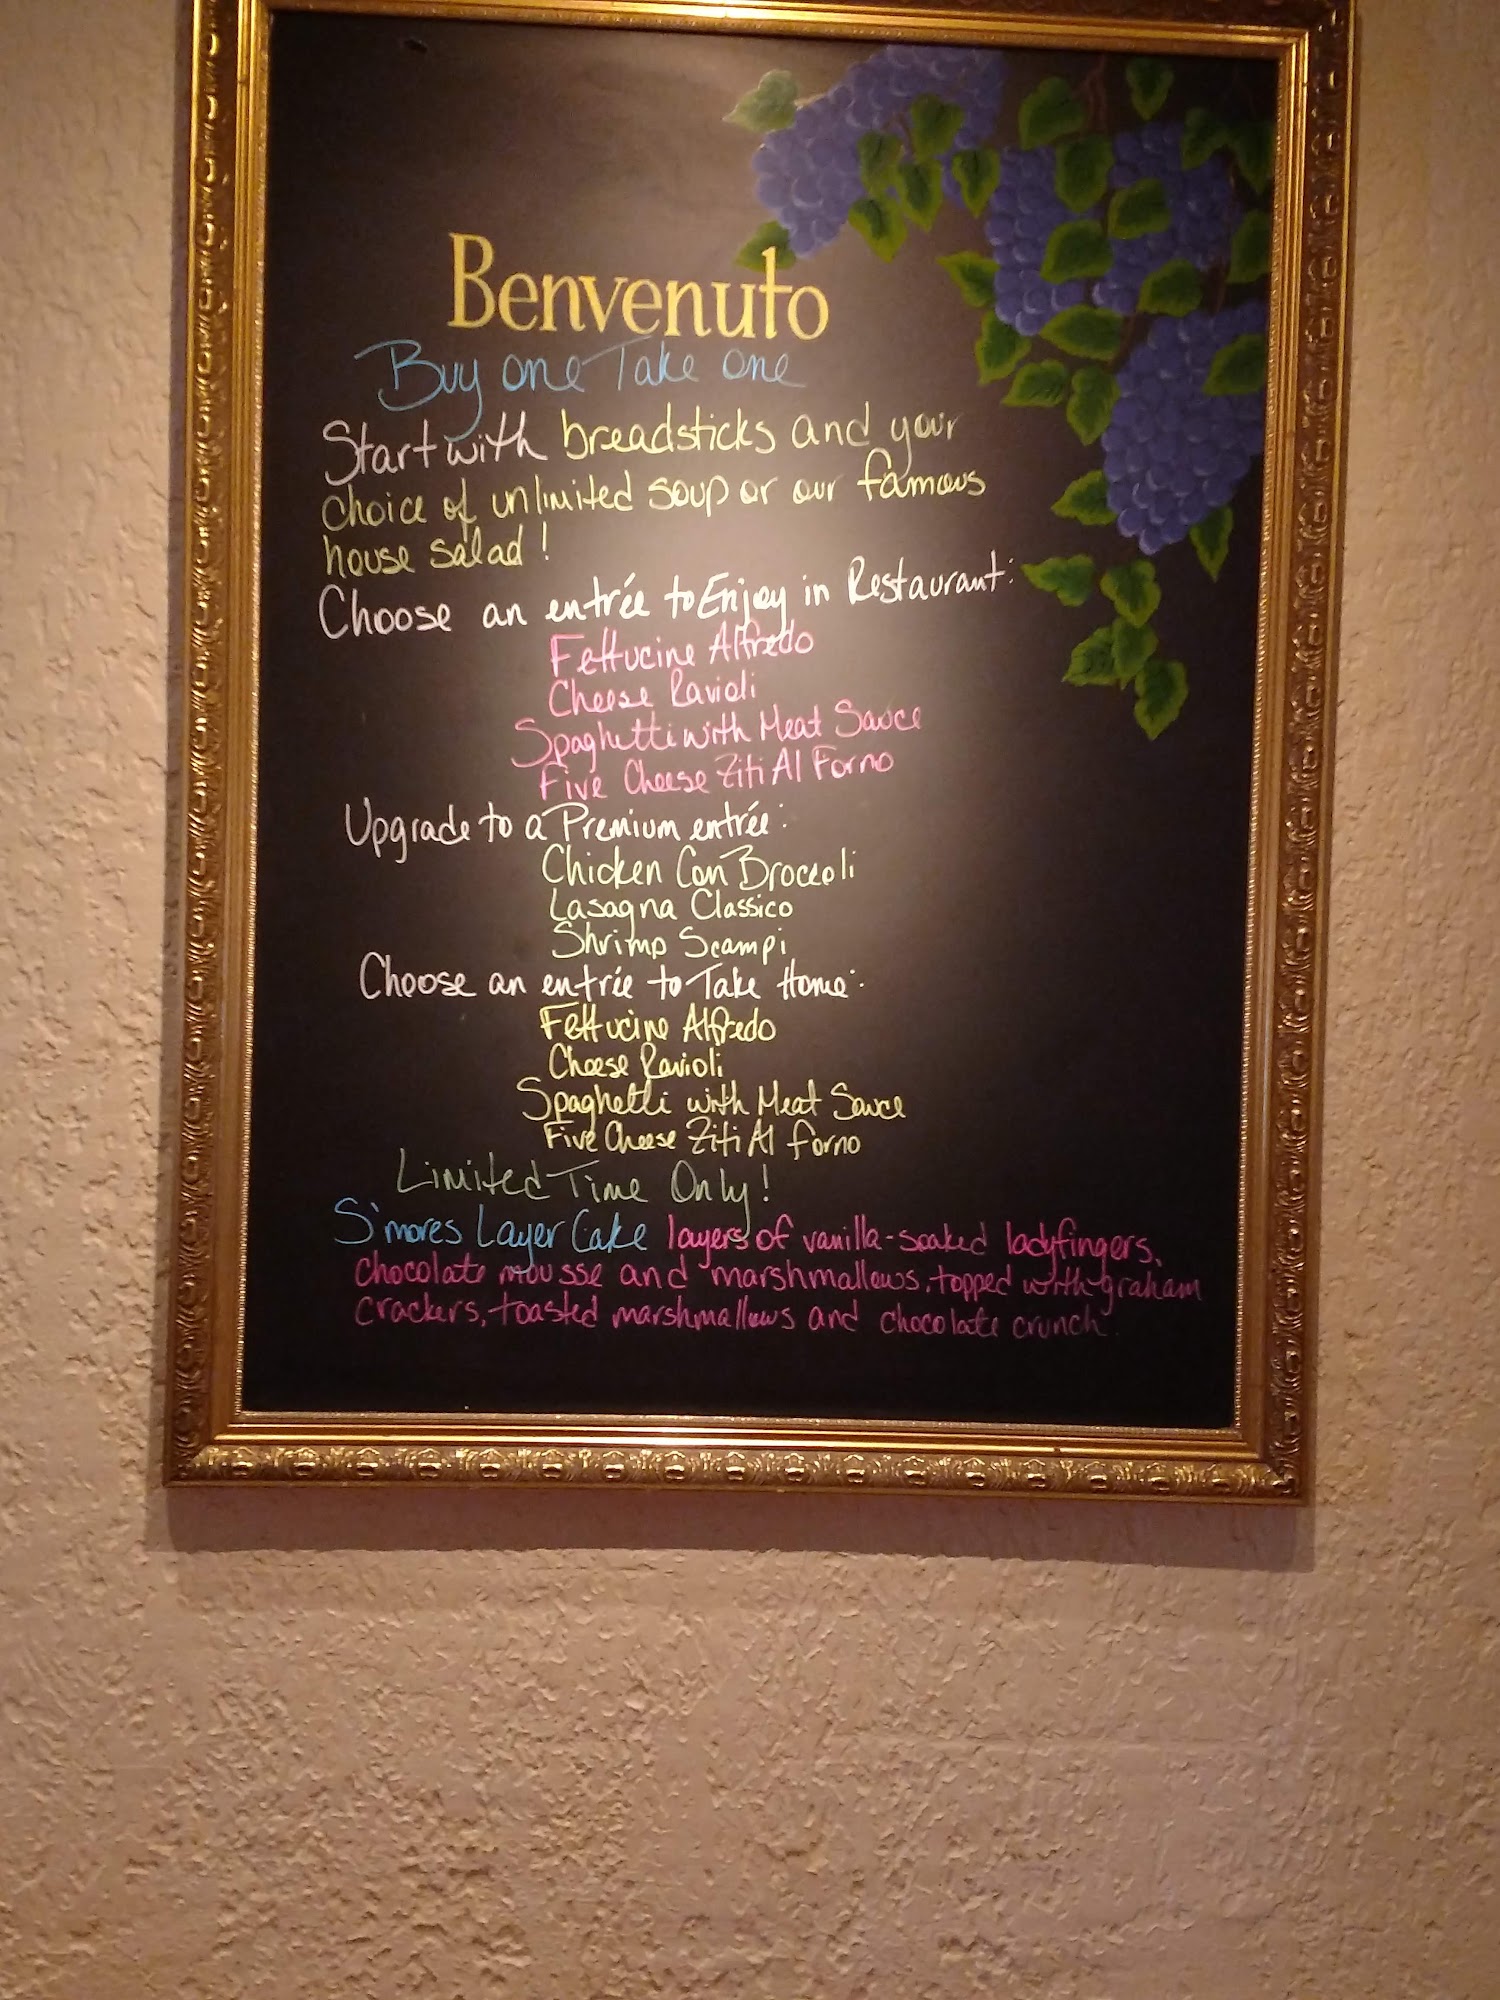 Benvenuto
Buy one Take one
Start with breadsticks and your
choice of unlimited soup or our famous
house salad!
Choose an entrée to Enjoy in Restaurant:
Fettucine Alfredo
Cheese Ravioli
Spaghetti with Meat Sauce
Five Cheese Ziti Al Forno
Upgrade to a Premium entrée:
Chicken Con Broccoli
Lasagna Classico
Shrimp Scampi
Choose an entrée to Take Home:
Fettucine Alfredo
Cheese Ravioli
Spaghetti with Meat Sauce
Five Cheese Ziti Al forno
Limited Time Only!
S'mores Layer Cake layers of vanilla-soaked ladyfingers,
chocolate mousse and marshmallows, topped with graham
crackers, toasted marshmallows and chocolate crunch.